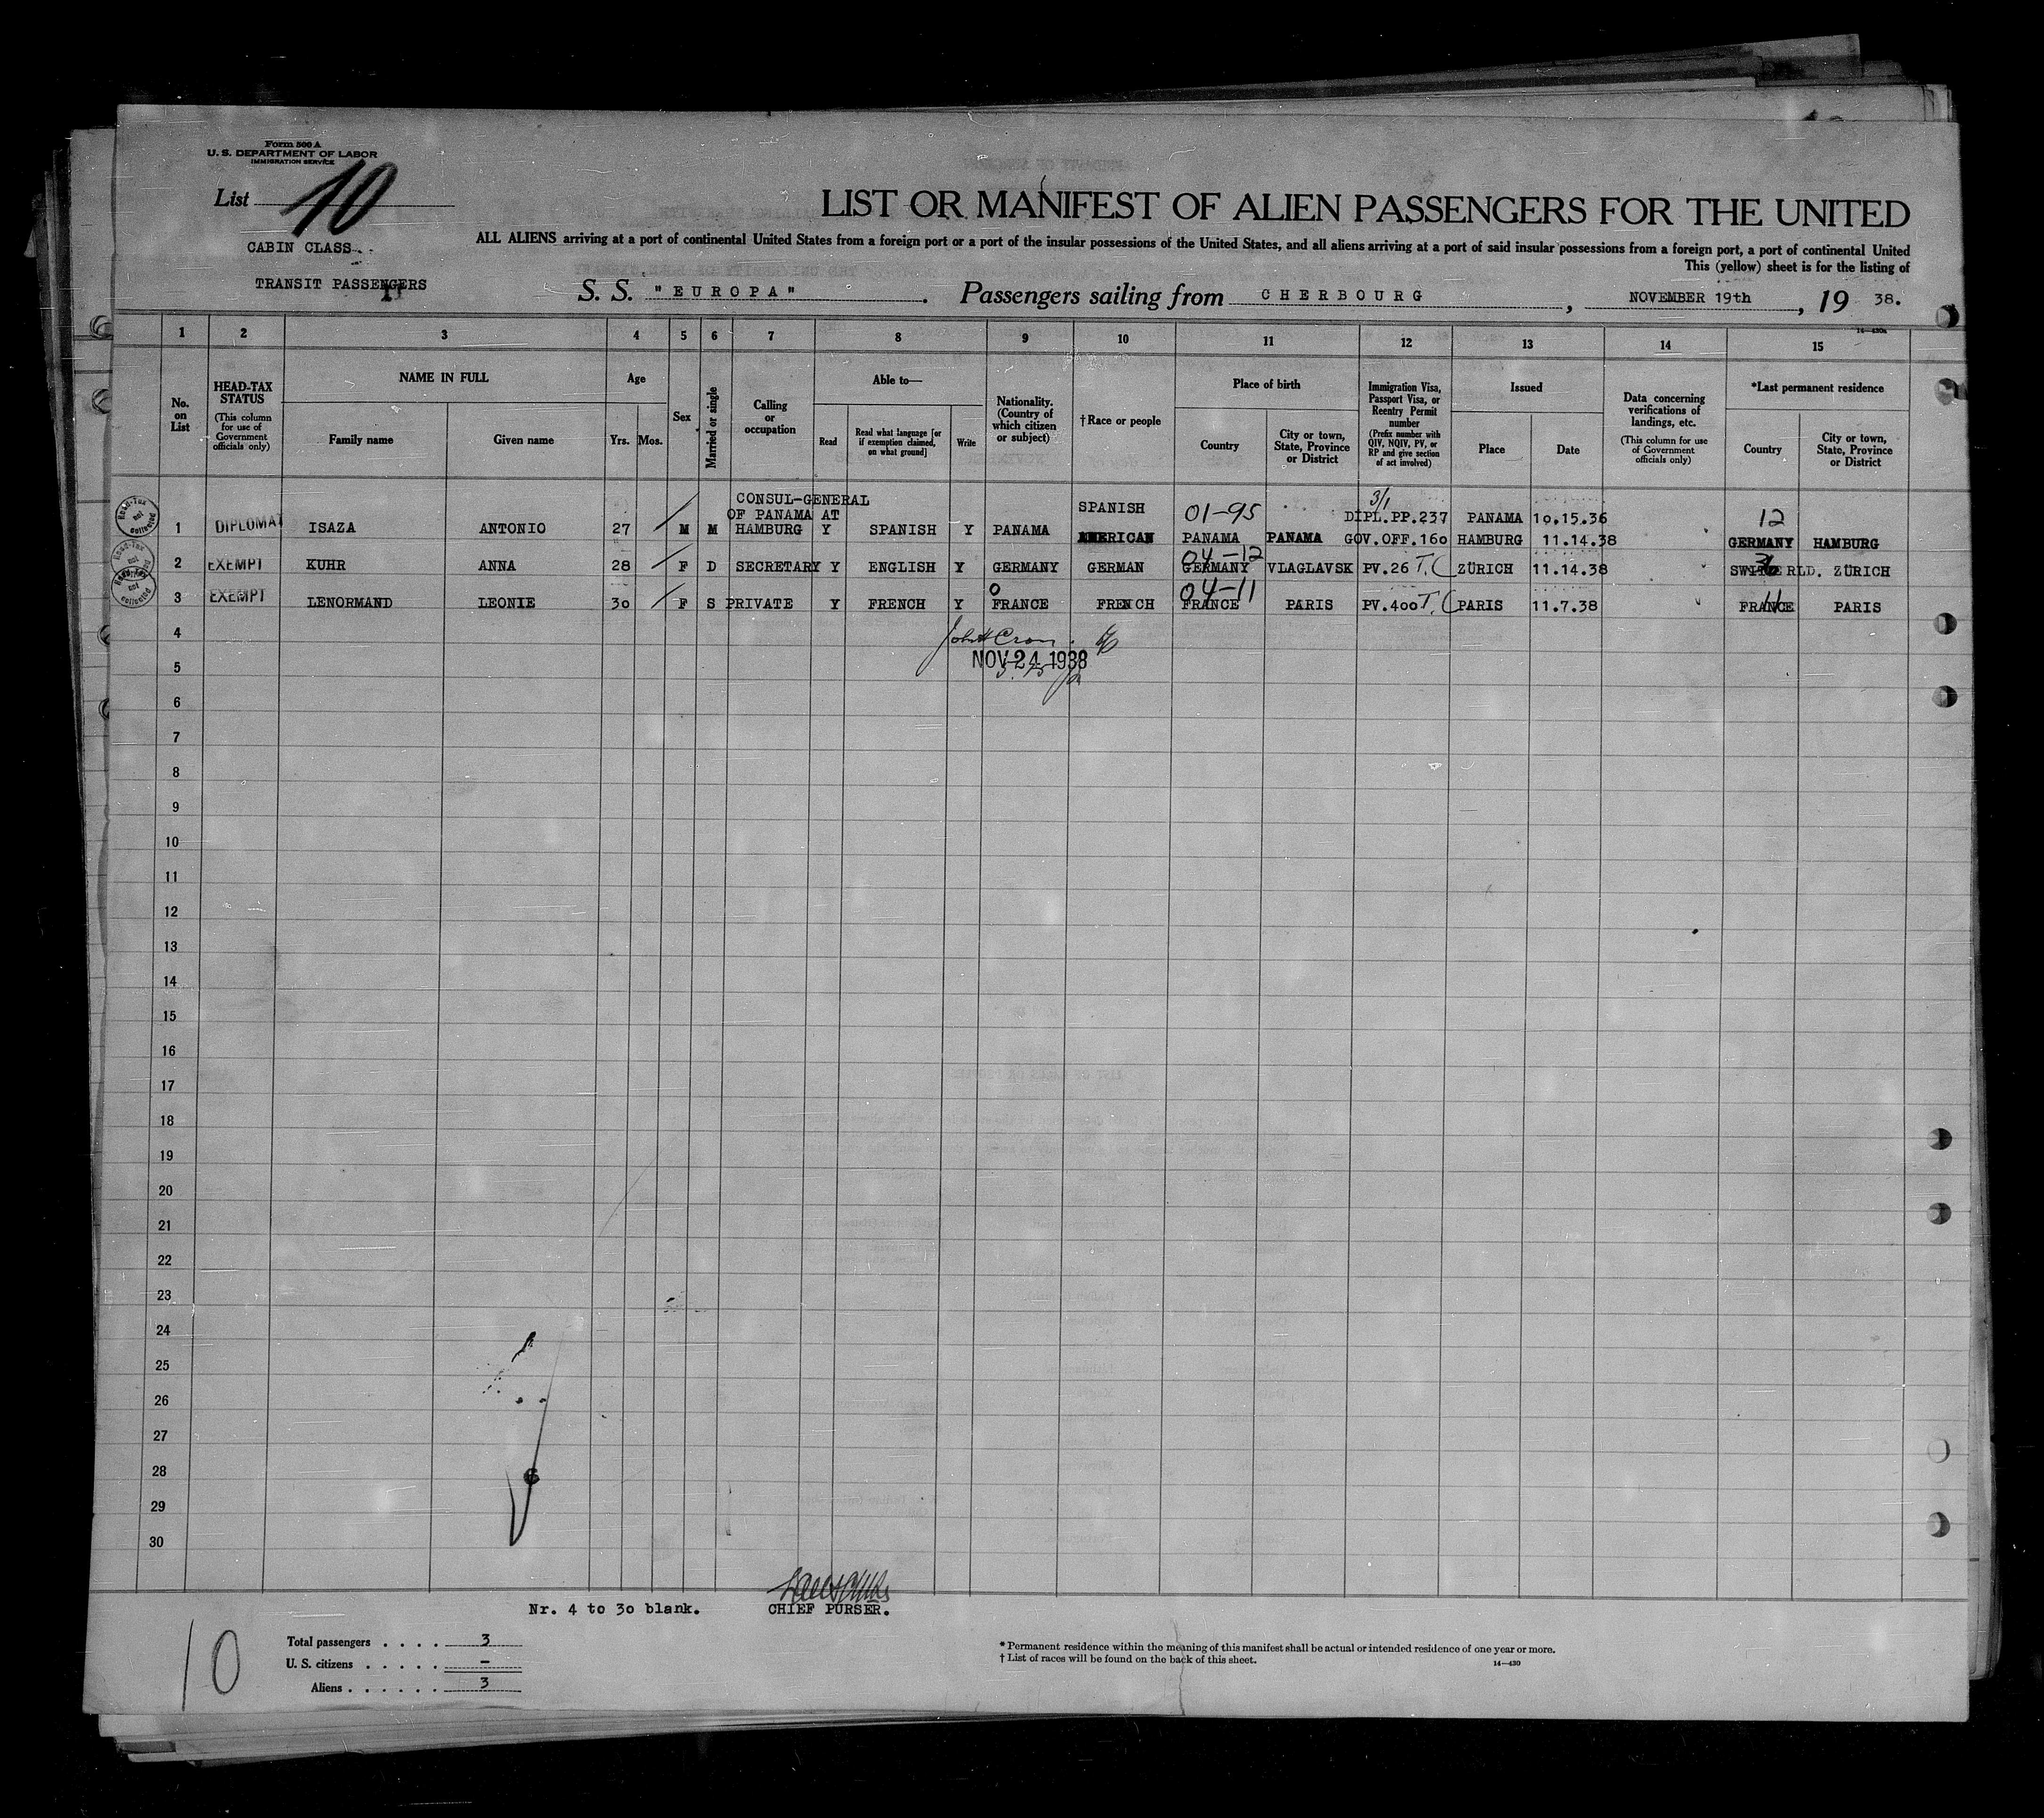 Form 500 A
U. S. DEPARTMENT OF LABOR
IMMIGRATION SERVICE
List 10
LIST OR MANIFEST OF ALIEN PASSENGERS FOR THE UNITED
CABIN CLASS
ALL ALIENS arriving at a port of continental United States from a foreign port or a port of the insular possessions of the United States, and all aliens arriving at a port of said insular possessions from a foreign port, a port of continental United
This (yellow) sheet is for the listing of
TRANSIT PASSENGERS
S. S. "EUROPA". Passengers sailing from CHERBOURG, NOVEMBER 19th, 19 38.
14—430a
1 2 3 4 5 6 7 8 9 10 11 12 13 14 15
No. on List
HEAD-TAX STATUS
(This column for use of Government officials only)
NAME IN FULL
Family name
Given name
Age
Yrs.
Mos.
Sex
Married or single
Calling or occupation
Able to—
Read
Read what language [or if exemption claimed, on what ground]
Write
Nationality. (Country of which citizen or subject)
† Race or people
Place of birth
Country
City or town, State, Province or District
Immigration Visa, Passport Visa, or Reentry Permit number
(Prefix number with QIV, NQIV, PV, or RP and give section of act involved)
Issued
Place
Date
Data concerning verifications of landings, etc.
(This column for use of Government officials only)
*Last permanent residence
Country
City or town, State, Province or District
CONSUL-GENERAL 3/1
OF PANAMA AT SPANISH 01-95 DIPL.PP.237 PANAMA 10.15.36 12
Head-Tax not collected 1 DIPLOMAT ISAZA ANTONIO 27 M M HAMBURG Y SPANISH Y PANAMA AMERICAN PANAMA PANAMA GOV.OFF.160 HAMBURG 11.14.38 GERMANY HAMBURG
04-12
Head-Tax not collected 2 EXEMPT KUHR ANNA 28 F D SECRETARY Y ENGLISH Y GERMANY GERMAN GERMANY VLAGLAVSK PV.26 T.C ZÜRICH 11.14.38 SWITZERLD. ZÜRICH
0 04-11
Head-Tax not collected 3 EXEMPT LENORMAND LEONIE 30 F S PRIVATE Y FRENCH Y FRANCE FRENCH FRANCE PARIS PV.400 T.C PARIS 11.7.38 FRANCE 11 PARIS
4
NOV 24 1938
5
6
7
8
9
10
11
12
13
14
15
16
17
18
19
20
21
22
23
24
25
26
27
28
29
30
Nr. 4 to 30 blank.
CHIEF PURSER.
10
Total passengers . . . . 3
U. S. citizens . . . . . —
Aliens . . . . . . 3
* Permanent residence within the meaning of this manifest shall be actual or intended residence of one year or more.
† List of races will be found on the back of this sheet.
14—430